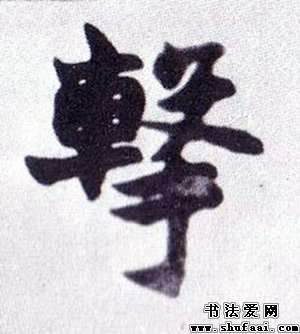 擊
书法爱网
www.shufaai.com